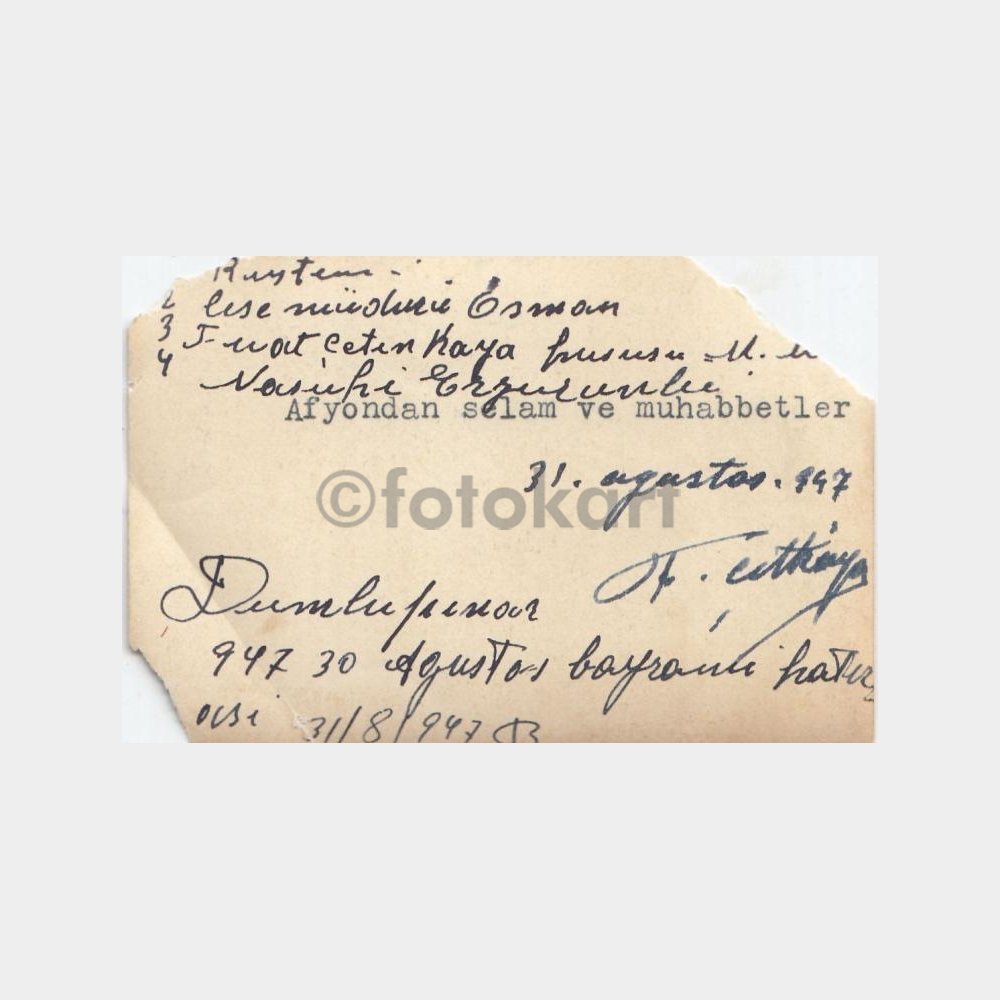 Rüstem
2 lise müdürü Esman
3 Fuat Cetinkaya hususu M.
4 Nasuhi Erzurumlu
Afyondan selam ve muhabbetler
31. agustos. 947
©fotokart
F. Çetkaya
Dumlupınar
947 30 Agustos bayramı hatır
ası 31/8/947